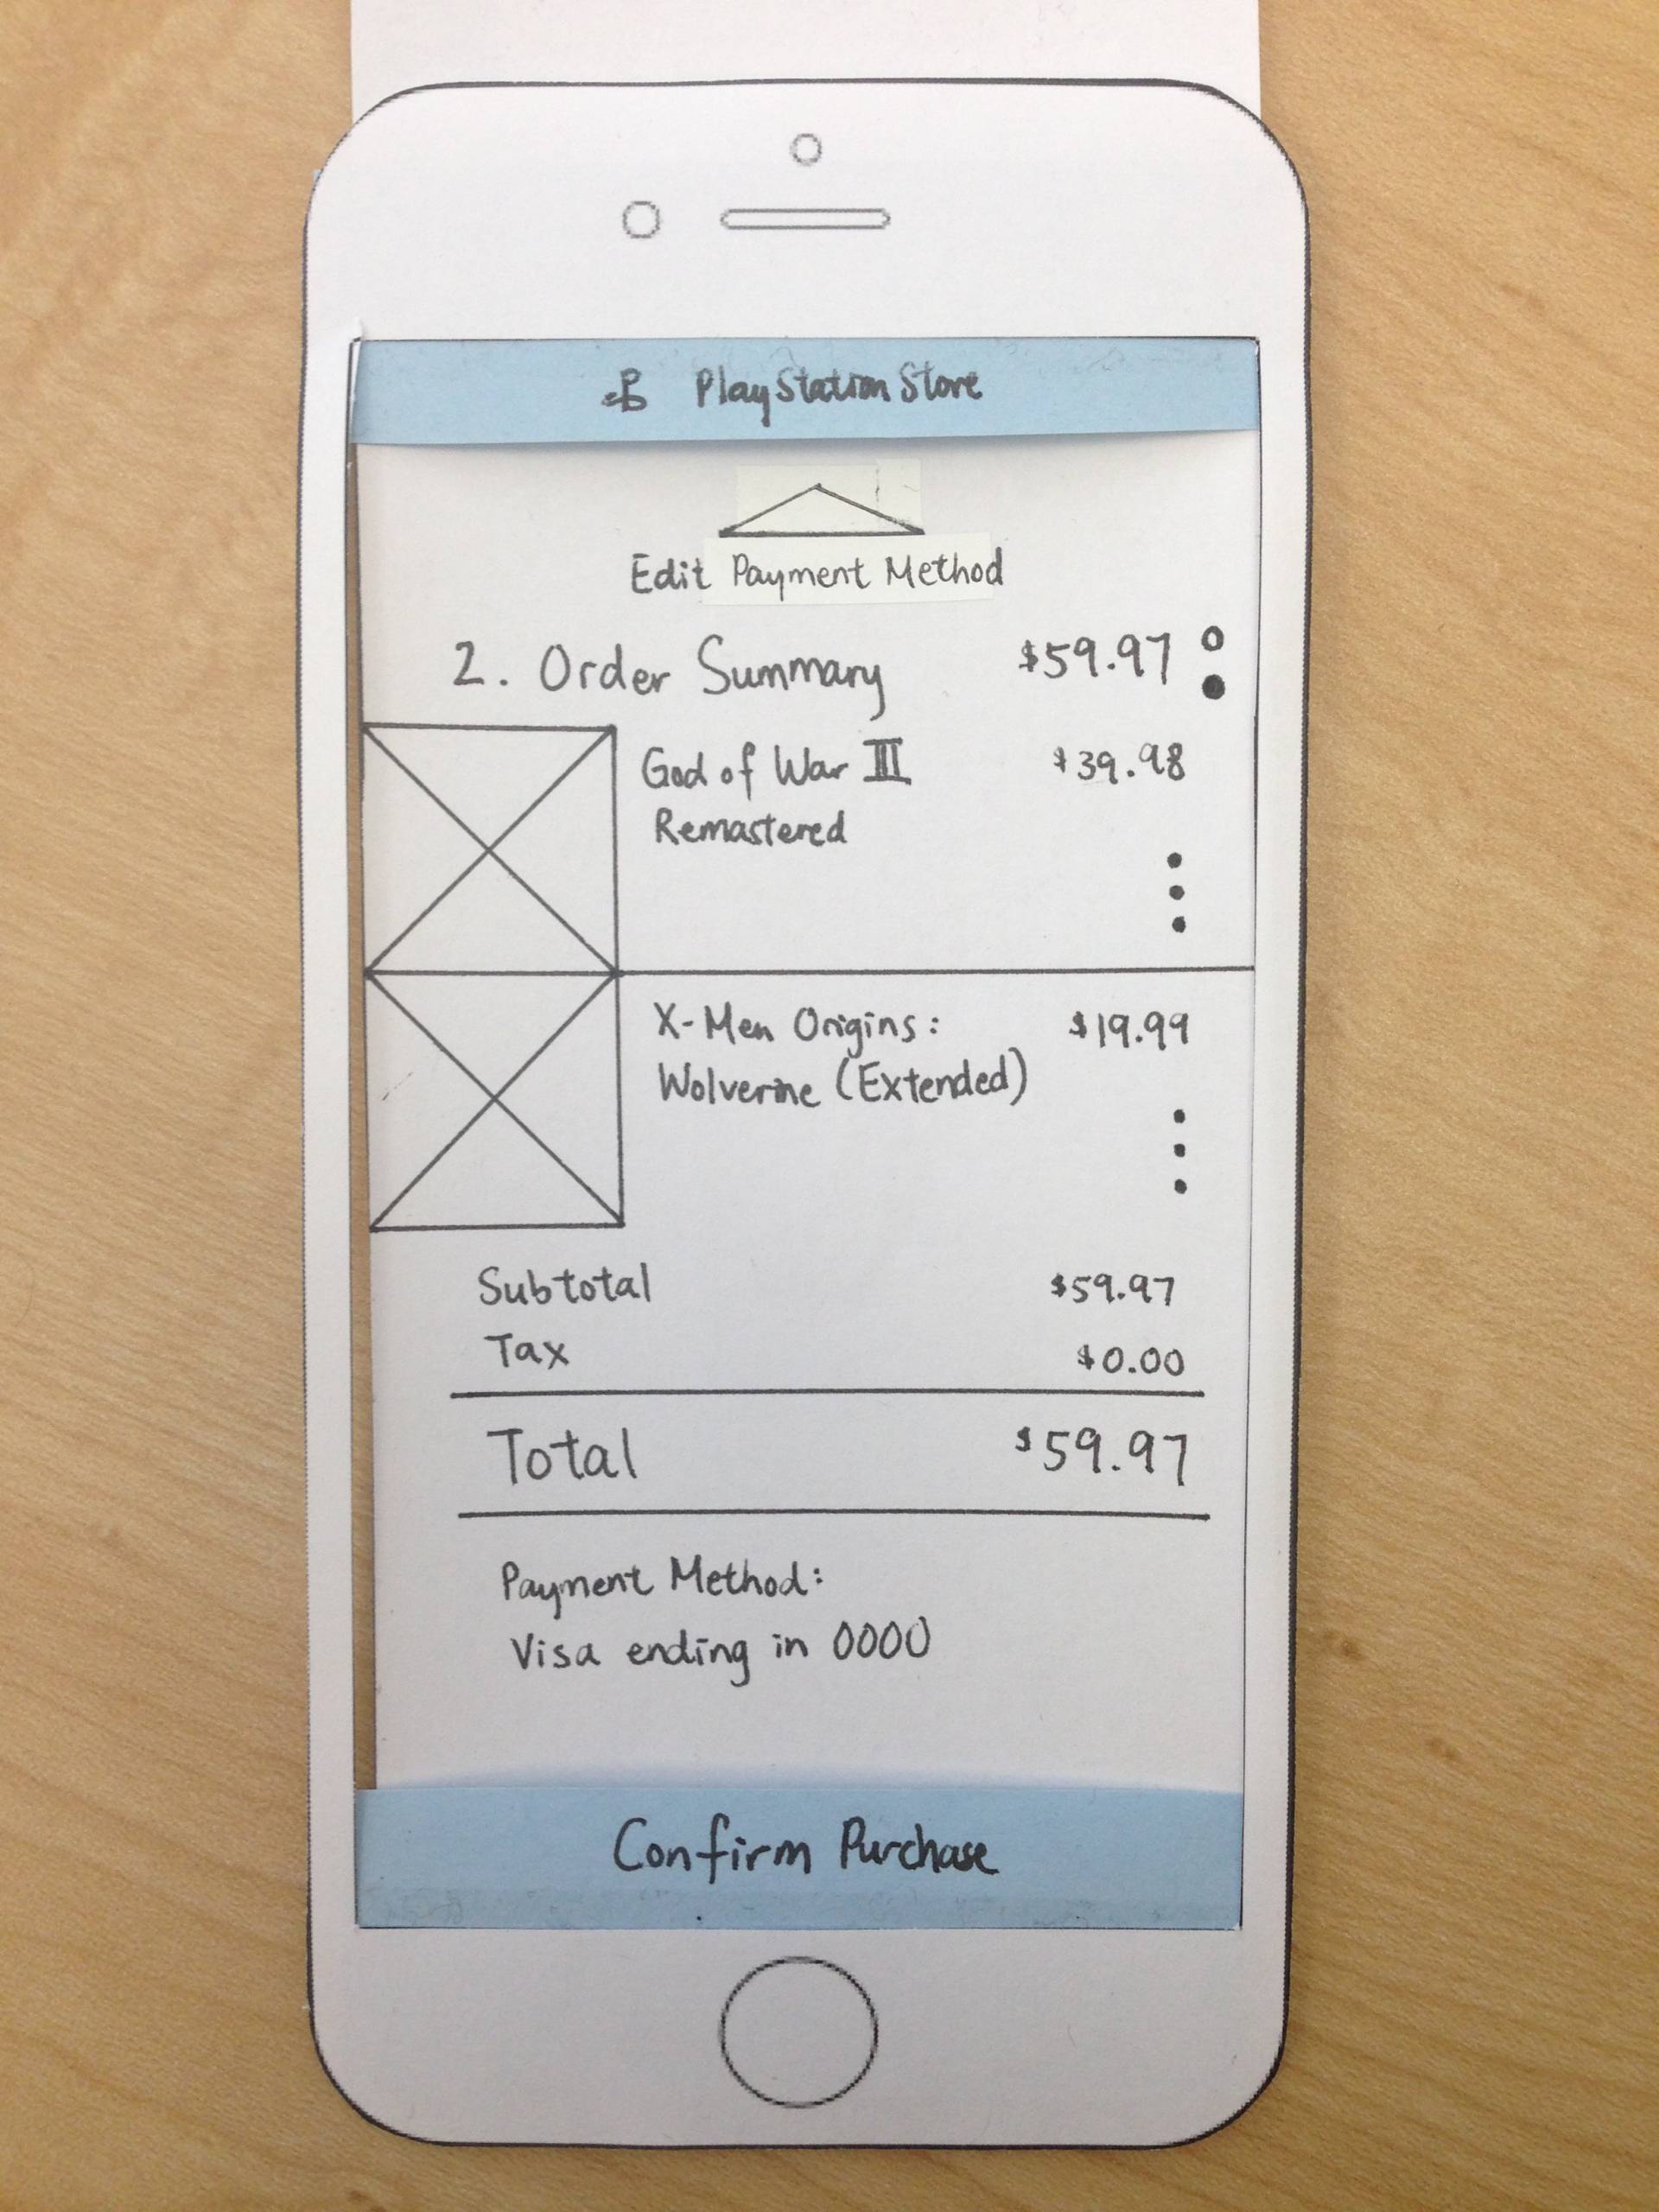 PlayStation Store
Edit Payment Method
2. Order Summary $59.97
God of War III $39.98
Remastered
X-Men Origins: $19.99
Wolverine (Extended)
Subtotal $59.97
Tax $0.00
Total $59.97
Payment Method:
Visa ending in 0000
Confirm Purchase